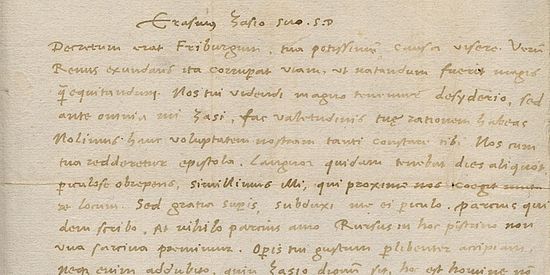 Erasmus Zasio suo. S.D
Decretum erat Friburgum, tua potissimū causa visere. Verum
Renus exundans ita corrupat viam, ut natandum fuerit magis
q̃ equitandum. Nos tui videndi magno tenemur desyderio, sed
ante omnia mi Zasi, fac valetudinis tuę rationem habeas
Nolimus hanc voluptatem nostram tanti constare tibi. Nos cum
tua redderetur epistola, languor quidam tenebat dies aliquot,
periculose obrepens, simillimus illi, qui proxime nos coegit
re locum. Sed gratia supis, subduxi me ei periculo. Parcius qui
dem scribo, At nihilo parcius amo. Rursus in hoc pistrino non
una sarcina premimur. Opis tui gustum perlibenter accipiam.
Neq enim addubito, quin Zasio dignū sit, hoc est homine no